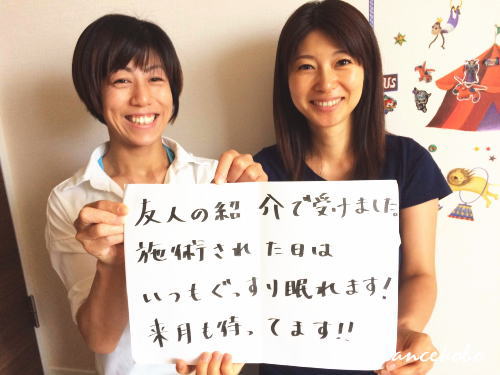 友人の紹介で受けました。
施術された日は
いつもぐっすり眠れます!
来月も待ってます!!
US